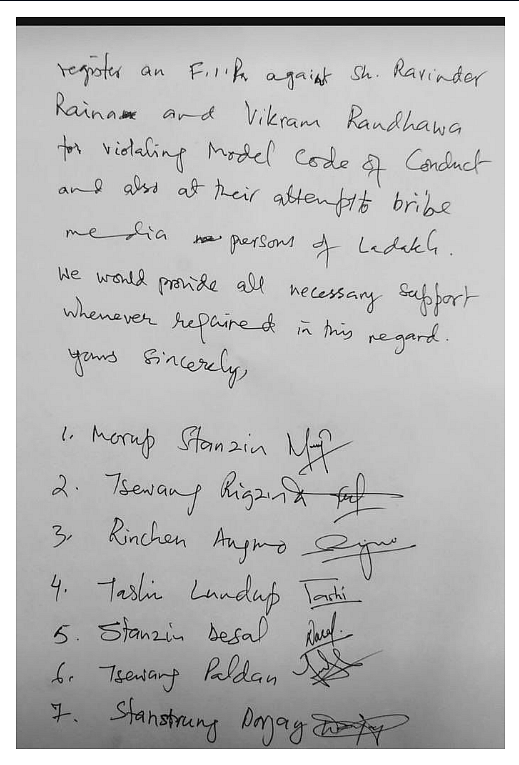 register an F.I.R. against Sh. Ravinder
Raina and Vikram Randhawa
for violating Model Code of Conduct
and also at their attempt to bribe
media persons of Ladakh.
We would provide all necessary support
whenever required in this regard.
yours sincerely,
1. Morup Stanzin
2. Tsewang Rigzin
3. Rinchen Angmo
4. Tashi Lundup Tashi
5. Stanzin Desal
6. Tsewang Paldan
7. Stanstrung Dorjay